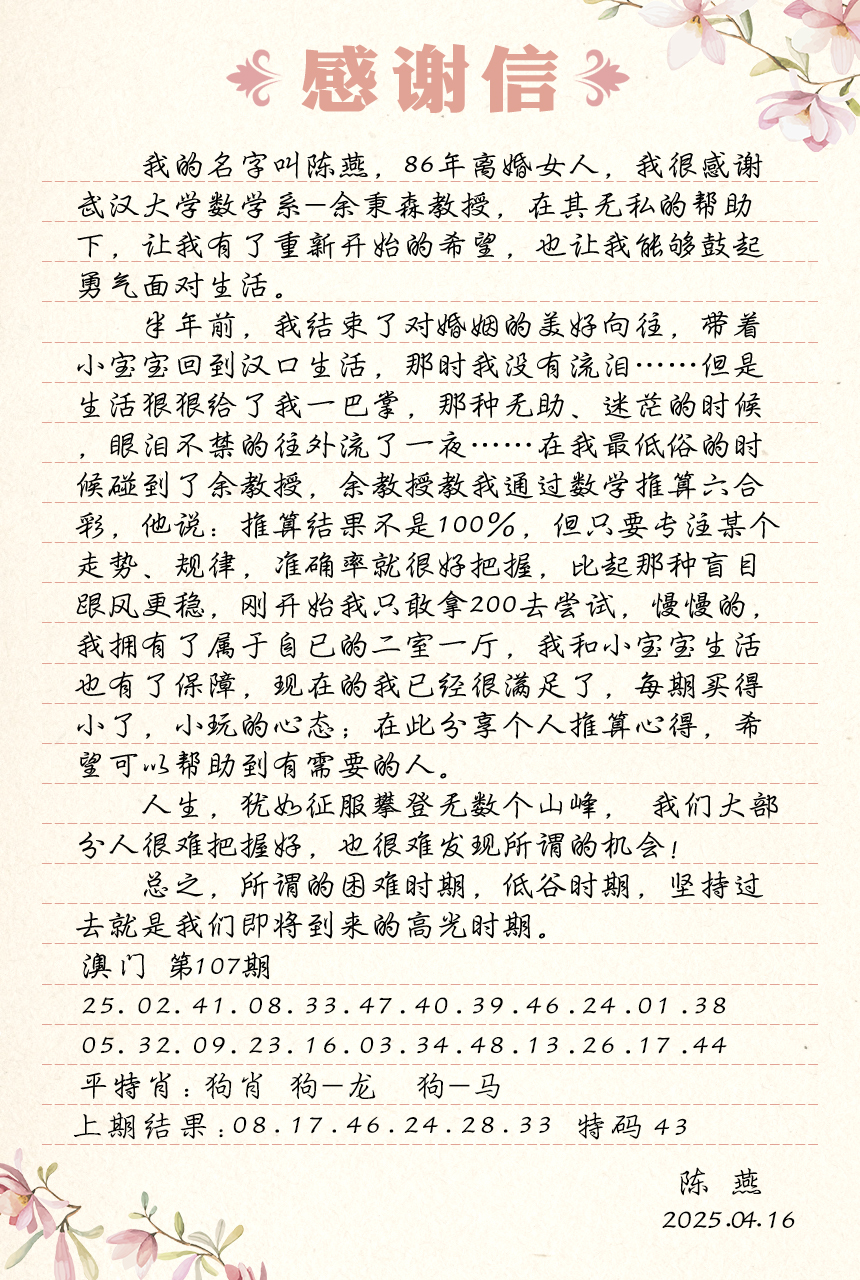 感谢信
我的名字叫陈燕，86年离婚女人，我很感谢
武汉大学数学系—余秉森教授，在其无私的帮助
下，让我有了重新开始的希望，也让我能够鼓起
勇气面对生活。
半年前，我结束了对婚姻的美好向往，带着
小宝宝回到汉口生活，那时我没有流泪……但是
生活狠狠给了我一巴掌，那种无助、迷茫的时候
，眼泪不禁的往外流了一夜……在我最低俗的时
候碰到了余教授，余教授教我通过数学推算六合
彩，他说：推算结果不是100%，但只要专注某个
走势、规律，准确率就很好把握，比起那种盲目
跟风更稳，刚开始我只敢拿200去尝试，慢慢的，
我拥有了属于自已的二室一厅，我和小宝宝生活
也有了保障，现在的我已经很满足了，每期买得
小了，小玩的心态；在此分享个人推算心得，希
望可以帮助到有需要的人。
人生，犹如征服攀登无数个山峰， 我们大部
分人很难把握好，也很难发现所谓的机会！
总之，所谓的困难时期，低谷时期，坚持过
去就是我们即将到来的高光时期。
澳门 第107期
25.02.41.08.33.47.40.39.46.24.01.38
05.32.09.23.16.03.34.48.13.26.17.44
平特肖：狗肖 狗—龙 狗—马
上期结果：08.17.46.24.28.33 特码 43
陈 燕
2025.04.16